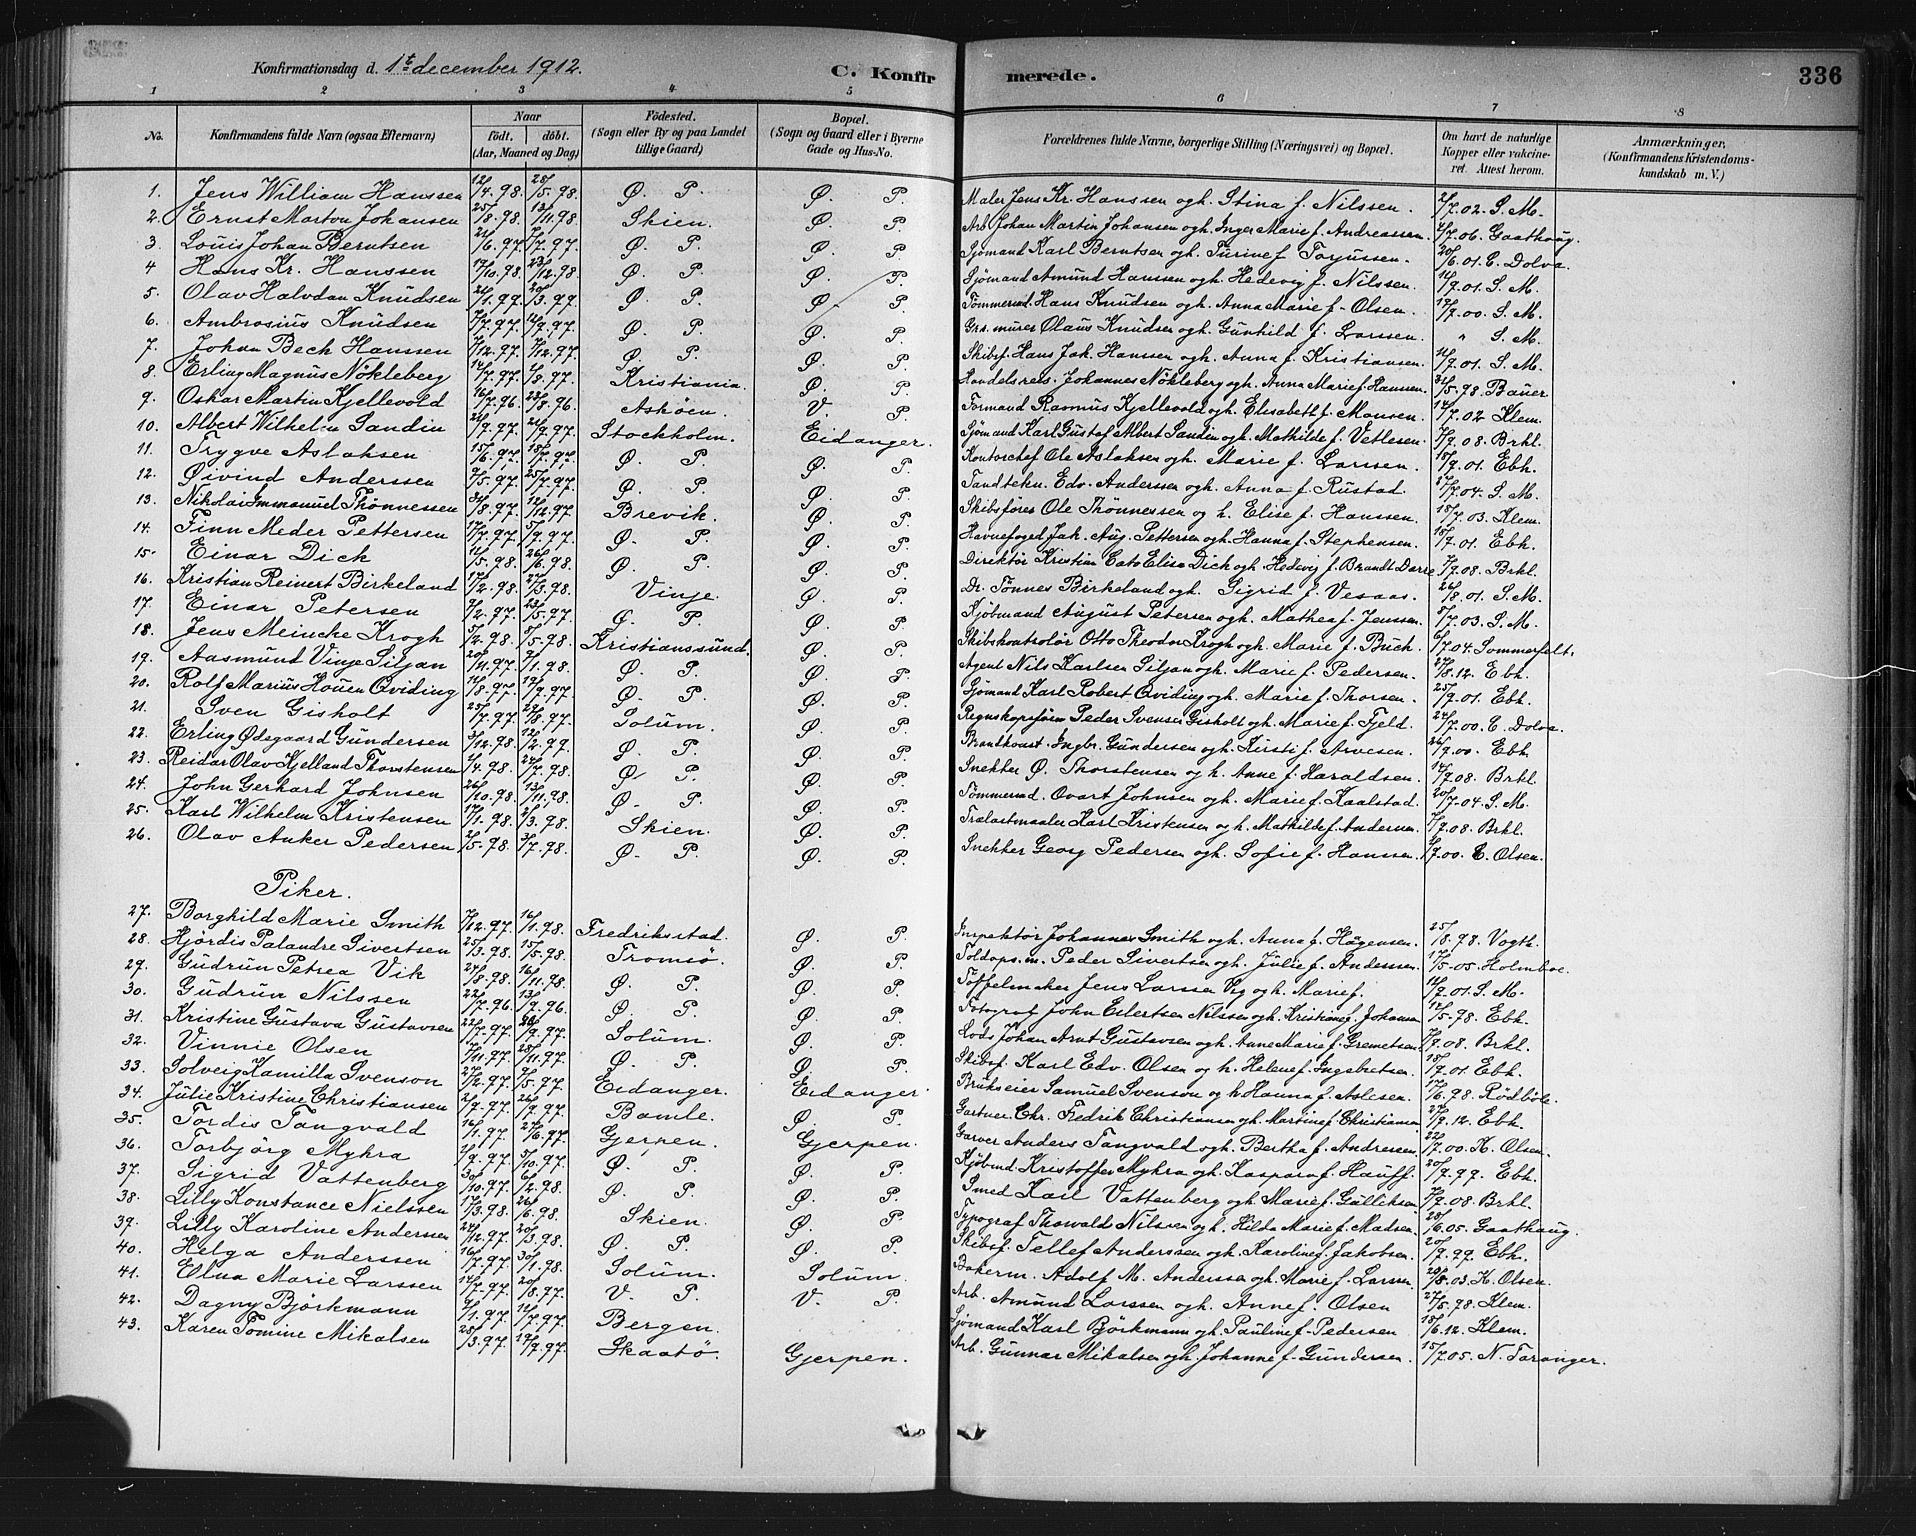 Konfirmationsdag d. 1ste december 1912. C. Konfirmerede. 336
1 2 3 4 5 6 7 8
No. Konfirmandens fulde Navn (ogsaa Efternavn) Naar født. døbt. (Aar, Maaned og Dag) Fødested. (Sogn eller By og paa Landet tillige Gaard) Bopæl. (Sogn og Gaard eller i Byerne Gade og Hus-No. Forældrenes fulde Navne, borgerlige Stilling (Næringsvei) og Bopæl. Om havt de naturlige Kopper eller vakcineret. Attest herom. Anmærkninger, (Konfirmandens Kristendomskundskab m. V.)
1. Jens William Hanssen 12/4.98. 28/5.98. Ø. P. Ø. P. Maler Jens Kr. Hanssen ogh. Stina f. Nilssen. 2/7.02. S. M.
2. Ernst Marton Johansen 25/8.98. 13/11.98. Skien. Ø. P. Arb. Johan Martin Johansen ogh. Inger Marie f. Andreassen. 4/7.06. Gaathaug.
3. Louis Johan Berntsen Ø. P. Ø. P. Sjømand Karl Berntsen ogh. Turine f. Torjussen. 20/6.01. E. Dolva.
4 Hans Kr. Hanssen 19/10.98. 23/12.98. Ø. P. Ø. P. Sjømand Amund Hanssen ogh. Hedevig f. Nilssen. S. M.
5. Olav Halvdan Knudsen Ø. P. Ø. P. Tømmermd. Hans Knudsen ogh. Anna Marie f. Olsen. 19/9.00. S. M.
6. Ambrosius Knudsen Ø. P. Ø. P. Grs. murer Olaus Knudsen ogh. Gunhild f. Larsen. " S. M.
7. Johan Bech Hanssen Ø. P. Ø. P. Skibsf. Hans Jak. Hanssen ogh. Anna f. Kristiansen. S. M.
8. Erling Magnus Nøkleberg 14/7.97. Kristiania. Ø. P. Handelsreis. Johannes Nøkleberg ogh. Anna Marie f. Hansen. 31/5.98. Bauer
9. Oskar Martin Kjellevold 16/7.96. 23/8.96. Askøen. V. P. Formand Rasmus Kjellevold ogh. Elisabeth f. Monsen. 14/7.02 Klem.
10. Albert Wilhelm Sandin Stockholm. Eidanger. Sjømand Karl Gustaf Albert Sandin ogh. Mathilde f. Vetlesen. 7/9.08. Brkl.
11. Trygve Aslaksen 15/6.97. 18/7.97. Ø. P. Ø. P. Kontorchef Ole Aslaksen ogh. Marie f. Larssen. 18/9.01. Ebh.
12. Øivind Anderssen 9/5.97. 25/7.97. Ø. P. Ø. P. Tandtekn. Edv. Anderssen ogh. Anna f. Rustad. 27/7.04. S. M.
13. Nikolai Immanuel Thønnessen 31/8.97. 12/12.97 Brevik. Ø. P. Skibsføres Ole Thønnessen og h. Elise f. Hanssen. 18/7.03. Klem.
14. Finn Meder Pettersen 17/7.97. 5/9.97. Ø. P. Ø. P. Havnefoged Jak. Aug. Pettersen ogh. Hanna f. Stephensen. 18/9.01. Ebh.
15. Einar Dick 12/5.98. 26/6.98. Ø. P. Ø. P. Direktør Kristian Cato Elisa Dich ogh. Hedevig f. Brandt Dorre 7/9.08. Brkl.
16. Kristian Reinert Birkeland 17/2.98. 27/3.98. Vinje. Ø. P. Dr. Tønnes Birkeland ogh. Sigrid f. Vesaas. 26/8.01. S. M.
17. Einar Petersen 9/2.97. 23/5.97. Ø. P. Ø. P. Kjøbmand August Petersen ogh. Mathea f. Jenssen. 8/7.03. S. M.
18. Jens Meincke Krogh 5/2.98. 8/5.98. Kristianssund. Ø. P. Skibskontrolør Otto Theodor Krogh ogh. Marie f. Buch. 6/7.04. Sommerfelt.
19. Aasmund Vinje Siljan 20/11.97. 9/1.98. Ø. P. Ø. P. Agent Nils Karlsen Siljan ogh. Marie f. Pedersen. 27/8.12. Ebh.
20. Rolf Marius Houen Qviding 14/8.97. 19/9.97. Ø. P. Ø. P. Sjømand Karl Robert Qviding ogh. Marie f. Thorsen. 25/9.01. Ebh.
21. Sven Gisholt 25/7.97. 29/8.97. Solum. Ø. P. Regnskapsfører Peder Svensen Gisholt ogh. Marie f. Fjeld. 24/7.00. E. Dolva.
22. Erling Ødegaard Gundersen 3/12.98. 12/2.99. Ø. P. Ø. P. Brandkonst. Ingbr. Gundersen ogh. Kirsti f. Arvesen. 26/9.00. Ebh.
23. Reidar Olav Kjelland Thorstensen 24/7.98. Ø. P. Ø. P. Snekker Ø. Thorstensen og h. Anne f. Haraldsen. 14/9.08. Brkl.
24. John Gerhard Johnsen 26/10.98. 13/11.98. Ø. P. Ø. P. Tømmermd. Ovart Johnsen ogh. Marie f. Kaalstad. 20/7.04. S. M.
25. Karl Wilhelm Kristensen Skien. Ø. P. Trælastmaaler Karl Kristensen og h. Mathilde f. Andersen. 7/9.08. Brkl.
26. Olav Anker Pedersen Ø. P. Ø. P. Snekker Georg Pedersen ogh. Sofie f. Hanssen. E. Olsen.
Piker.
27. Borghild Marie Smith 7/12.97. 16/1.98. Fredriksstad. Ø. P. Inspektør Johannes Smith ogh. Anna f. Hågensen. 25/8.98. Vogth.
28. Hjørdis Palandre Sivertsen 25/3.98. 15/5.98. Tromsø. Ø. P. Toldops.m. Peder Sivertsen ogh. Julie f. Andersen. 17/5.05. Holmboe.
29. Gudrun Petrea Vik 27/8.98. 16/11.98. Ø. P. Ø. P. Tøffelmaker Jens Larsen Vig ogh. Marie f. S. M.
30. Gudrun Nilssen 22/7.96. 13/9.96. Ø. P. Ø. P. Fotograf John Eilertsen Nilssen ogh. Kristiane f. Johansen 12/5.98. Ebh.
31. Kristine Gustava Gustavsen 22/7.97. Solum. Ø. P. Lods Johan Arnt Gustavsen ogh. Anne Marie f. Gremetsen. 7/9.08. Brkl.
32. Vinnie Olsen 7/11.97. 28/11.97. Ø. P. Ø. P. Skibsf. Karl Edv. Olsen og h. Helene f. Ingebretsen. 18/9.01. Ebh.
33. Solveig Kamilla Svenson 27/2.97. 9/5.97. Eidanger. Eidanger Brukseier Samuel Svenson og h. Hanna f. Aslesen. 17/6.98. Rødbøle.
34. Julie Kristine Christiansen 26/9.97. Bamle. Ø. P. Gartner Chr. Fredrik Christiansen ogh. Martine f. Christiansen 27/9.12. Ebh.
35. Tordis Tangvald 16/1.97. 27/6.97. Gjerpen. Gjerpen. Garver Anders Tangvald ogh. Bertha f. Andressen. 22/7.00. K. Olsen.
36. Torbjørg Myhra Ø. P. Ø. P. Kjøbmd. Kristoffer Myhra ogh. Kaspara f. Hauff. 20/9.99. Ebh.
37. Sigrid Vattenberg 30/10.97. 6/2.98. Ø. P. Ø. P. Smed Karl Vattenberg ogh. Marie f. Gulliksen 7/9.08. Brkl.
38. Lilly Konstance Nielssen 17/3.98. 26/6.98. Skien. Ø. P. Typograf Thorvald Nilsen ogh. Hilda Marie f. Madsen. 28/6.05. Gaathaug.
39. Lilly Karoline Andersen 24/12.97. 20/3.98. Ø. P. Ø. P. Skibsf. Tellef Anderssen ogh. Karoline f. Jakobsen. 20/9.99. Ebh.
40. Helga Anderssen 16/7.97. 30/1.98. Solum. Solum. Bakerm. Adolf M. Andersen ogh. Marie f. Larsen. 20/8.03. K. Olsen.
41. Elna Marie Larssen 14/7.97. 20/8.97. V. P. V. P. Arb. Amund Larssen ogh. Anne f. Olsen 27/5.98. Klem.
42. Dagny Bjørkmann 9/1.97. 12/7.97. Bergen. Sjømand Karl Bjørkmann ogh. Pauline f. Pedersen 18/6.12. Klem.
43. Karen Tomine Mikalsen 28/3.97. 19/9.97. Skaatø. Gjerpen. Arb. Gunnar Mikalsen ogh. Johanne f. Gundersen. 15/7.05. N. Taranger.